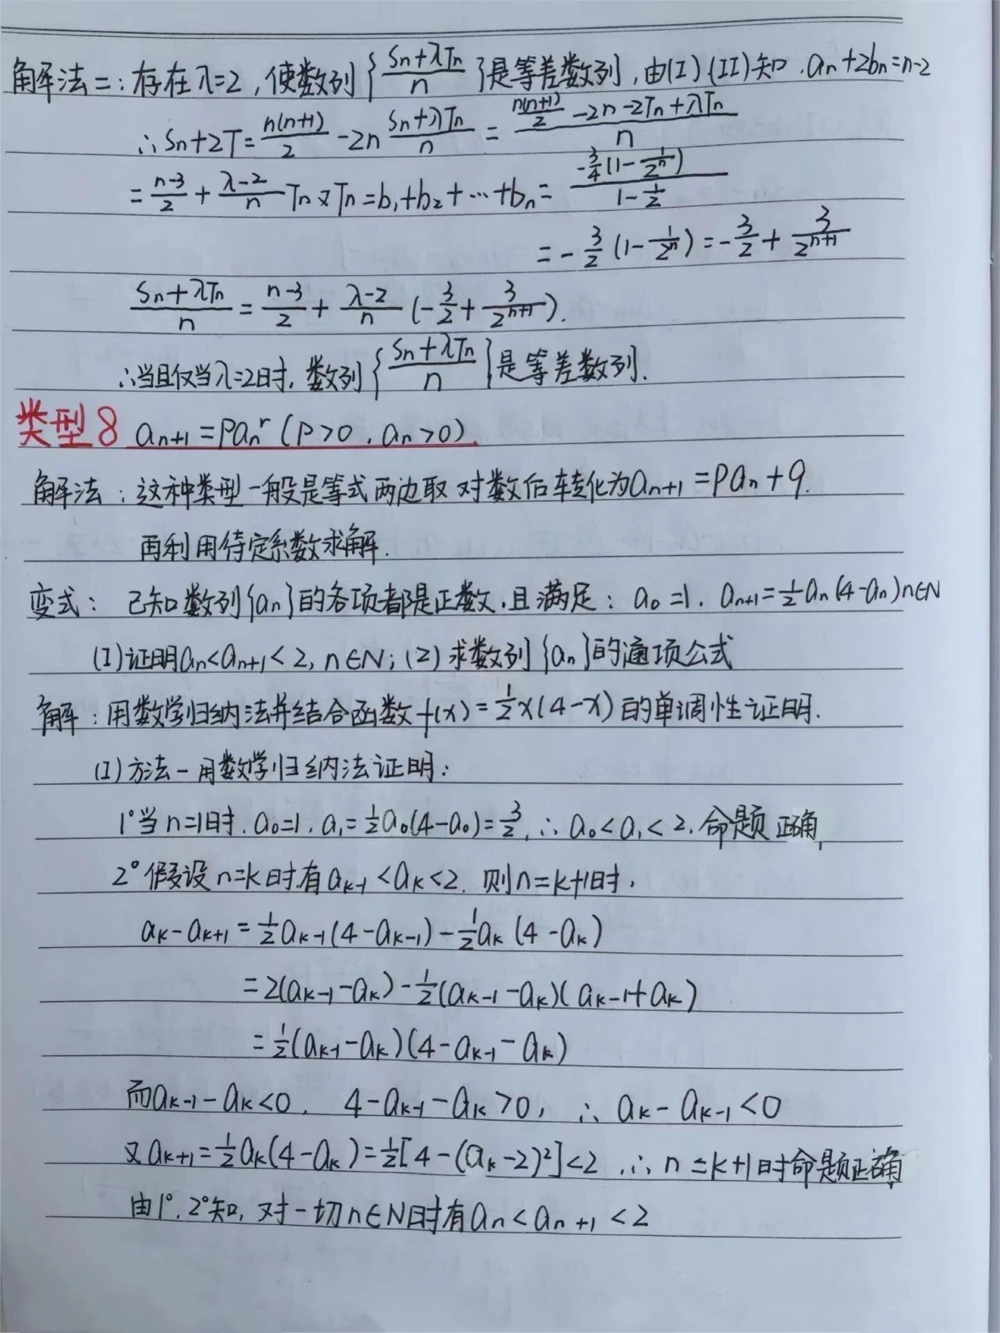 解法二：存在λ=2，使数列{(Sn+λTn)/n}是等差数列，由(I)(II)知．an+2bn=n-2
∴Sn+2T=n(n+1)/2 -2n (Sn+λTn)/n = (n(n+1)/2 -2n-2Tn+λTn)/n
=(n-3)/2+(λ-2)/n Tn又Tn=b₁+b₂+…+bn=(-3/4(1-1/2ⁿ))/(1-1/2)
=-3/2(1-1/2ⁿ)=-3/2+3/2ⁿ⁺¹
(Sn+λTn)/n=(n-3)/2+(λ-2)/n(-3/2+3/2ⁿ⁺¹).
∴当且仅当λ=2时，数列{(Sn+λTn)/n}是等差数列.
类型8 an+1=Panʳ(P>0，an>0)
解法：这种类型一般是等式两边取对数后转化为an+1=Pan+q.
再利用待定系数求解.
变式：已知数列{an}的各项都是正数，且满足：a₀=1．an+1=½an(4-an)n∈N
(I)证明an<an+1<2，n∈N；(2)求数列{an}的通项公式
解：用数学归纳法并结合函数f(x)=½x(4-x)的单调性证明.
(I)方法一用数学归纳法证明：
1°当n=1时．a₀=1．a₁=½a₀(4-a₀)=3/2，∴a₀<a₁<2．命题正确
2°假设n=k时，有ak-1<ak<2．则n=k+1时，
ak-ak+1=½ak-1(4-ak-1)-½ak(4-ak)
=2(ak-1-ak)-½(ak-1-ak)(ak-1+ak)
=½(ak-1-ak)(4-ak-1-ak)
而ak-1-ak<0．4-ak-1-ak>0，∴ak-ak-1<0
又ak+1=½ak(4-ak)=½[4-(ak-2)²]<2．∴n=k+1时命题正确
由1°．2°知，对一切n∈N时有an<an+1<2